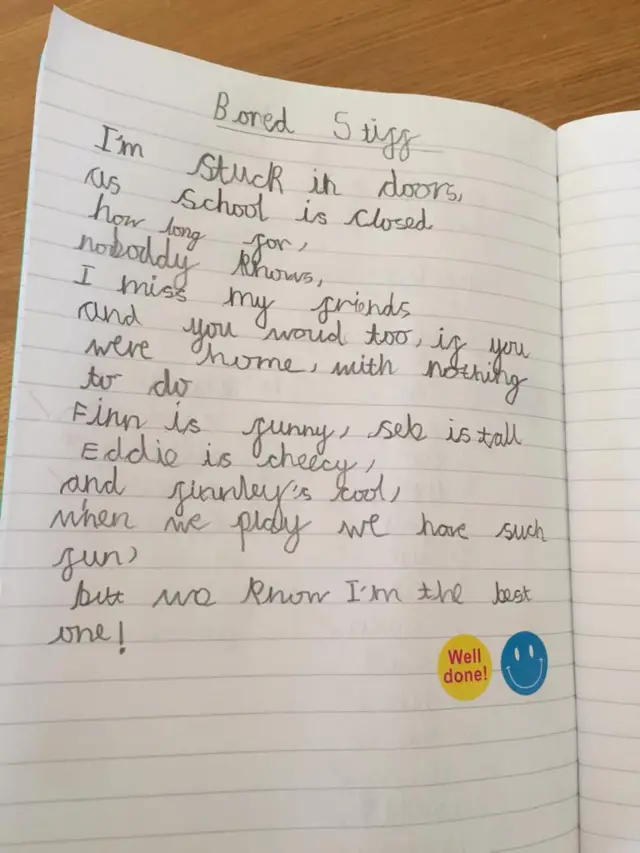 Bored Stiff
I'm stuck in doors,
as school is closed
how long for,
noboddy knows,
I miss my friends
and you woud too, if you
were home, with nothing
to do
Finn is funny, seb is tall
Eddie is cheecy,
and finnley's cool,
when we play we have such
fun,
but we know I'm the best
one!
Well
done!